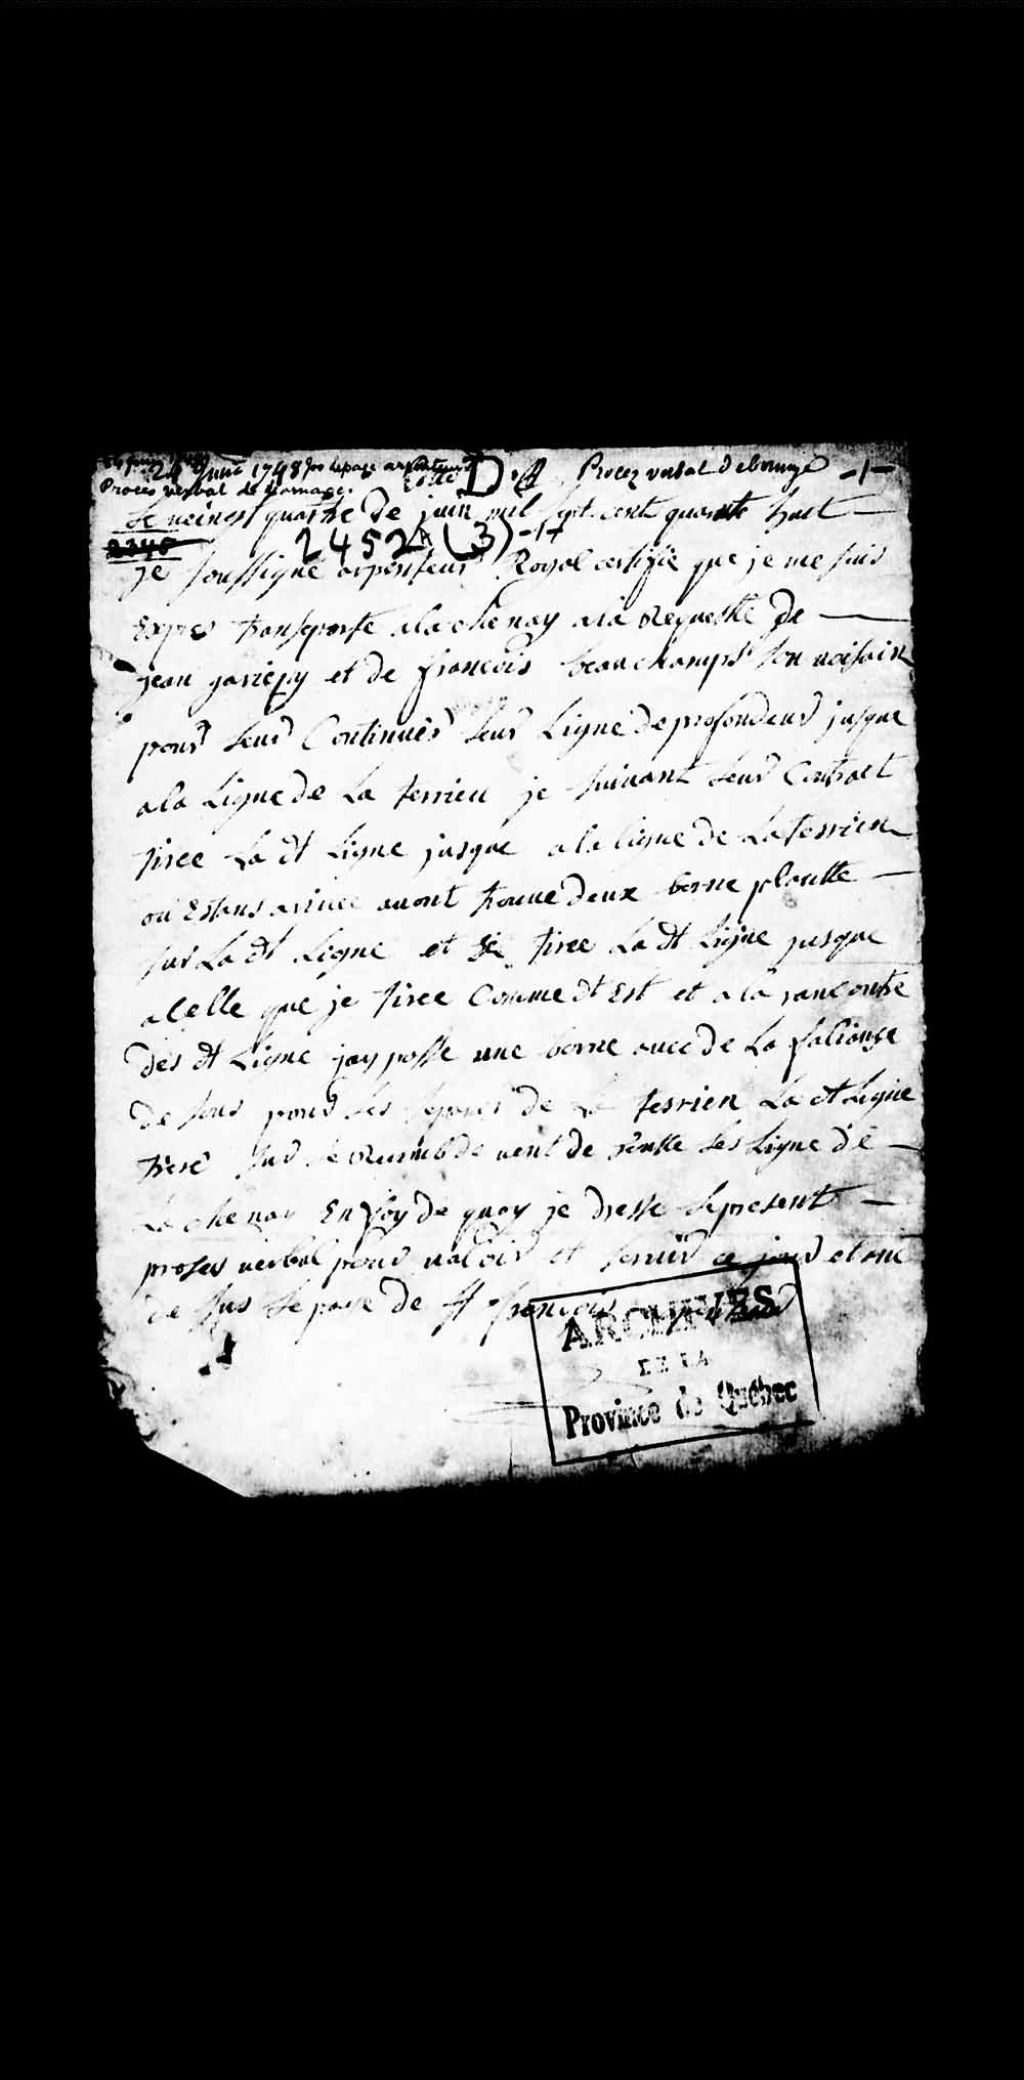 24 Juin 1748 Jos lepage arpenteur
Proces verbal de bornage.
Cotté D Procez verbal debornage
Le veingt quatre de juin mil sept cent quarente huit
2452 (3)
je soussigne arpenteur Royal certifie que je me suis
Expres transporte alachenay ala Requeste de
jean gariepy et de francois beauchamps son voisain
pour leur Continuer leur Ligne deprofondeur jusque
ala Ligne de La terrieu je suivant leur Contract
tiree La dt Ligne jusque ala ligne de Laterrien
ou Estans arivee avont trouve deux borne plantte
sur La dt Ligne et tiree La dt Ligne jusque
a Celle que je tiree Comme dt Est et ala rancontre
des dt Ligne jay posse une borne avec de La faliange
de sous pour les separer de La terrien La dt Ligne
tiree sur le Rumb de vent de toutte les Ligne de
La chenay En foy de quoy je dresse le present
proses verbal pour valoir et servir ce jour et ane
de sus Le page de St francois
ARCHIVES
DE LA
Province de Québec